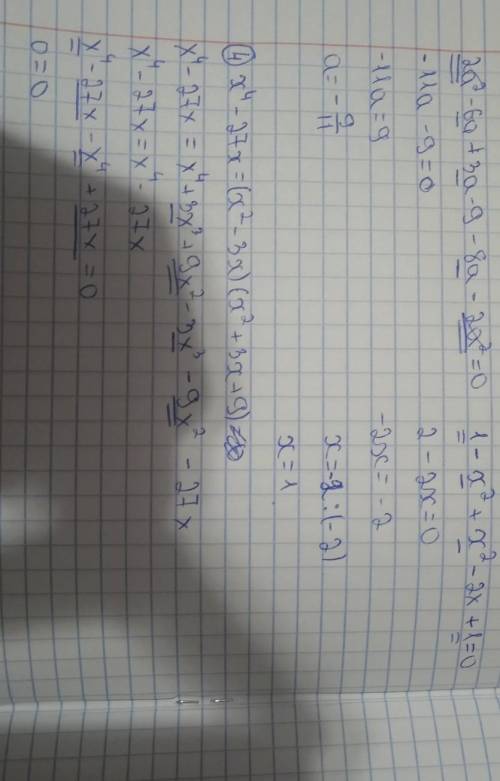 2a² - 6a + 3a - 9 - 8a - 2a² = 0
-11a - 9 = 0
-11a = 9
a = - 9/11
1 - x² + x² - 2x + 1 = 0
2 - 2x = 0
-2x = -2
x = -2 : (-2)
x = 1
④ x⁴ - 27x = (x² - 3x)(x² + 3x + 9)
x⁴ - 27x = x⁴ + 3x³ + 9x² - 3x³ - 9x² - 27x
x⁴ - 27x = x⁴ - 27x
x⁴ - 27x - x⁴ + 27x = 0
0 = 0